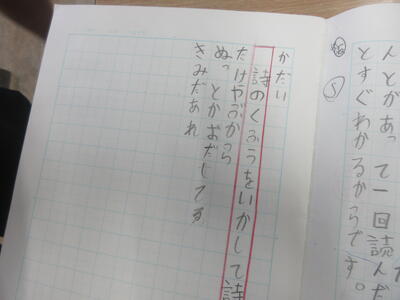 人とがあって一回読んだ
とすぐわかるからです。
かだい
詩のくふうをいかして詩
たけやぶから
ぬっとかおだしてる
きみだあれ